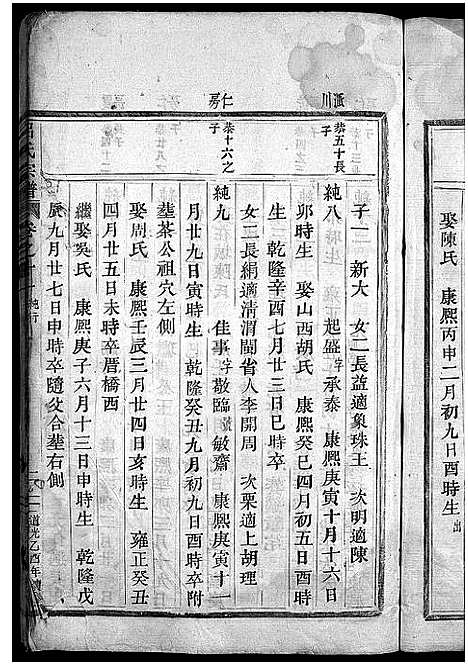 娶陳氏　康熙丙申二月初九日酉時生　出
川
房　仁
恭五十長子
恭十六之子
子一　新大　女二長益適象珠王　次明適陳
純八　起盛字承泰　康熙庚寅十月十六日
卯時生　娶山西胡氏　康熙癸巳四月初五日酉時
生　乾隆辛酉七月廿三日巳時卒
女二長絹適清渭閩省人李開周　次栗適上胡理
純九　佳事字敬臨號敏齋　康熙庚寅十一
月廿九日寅時生　乾隆癸丑九月初九日酉時卒附
塟茶公祖穴左側
娶周氏　康熙壬辰三月廿四日亥時生　雍正癸丑
四月廿五日未時卒厝橋西
繼娶吳氏　康熙庚子六月十三日申時生　乾隆戊
辰九月廿七日申時卒隨父合塟右側
氏宗譜　卷之十一　純行　道光乙酉年